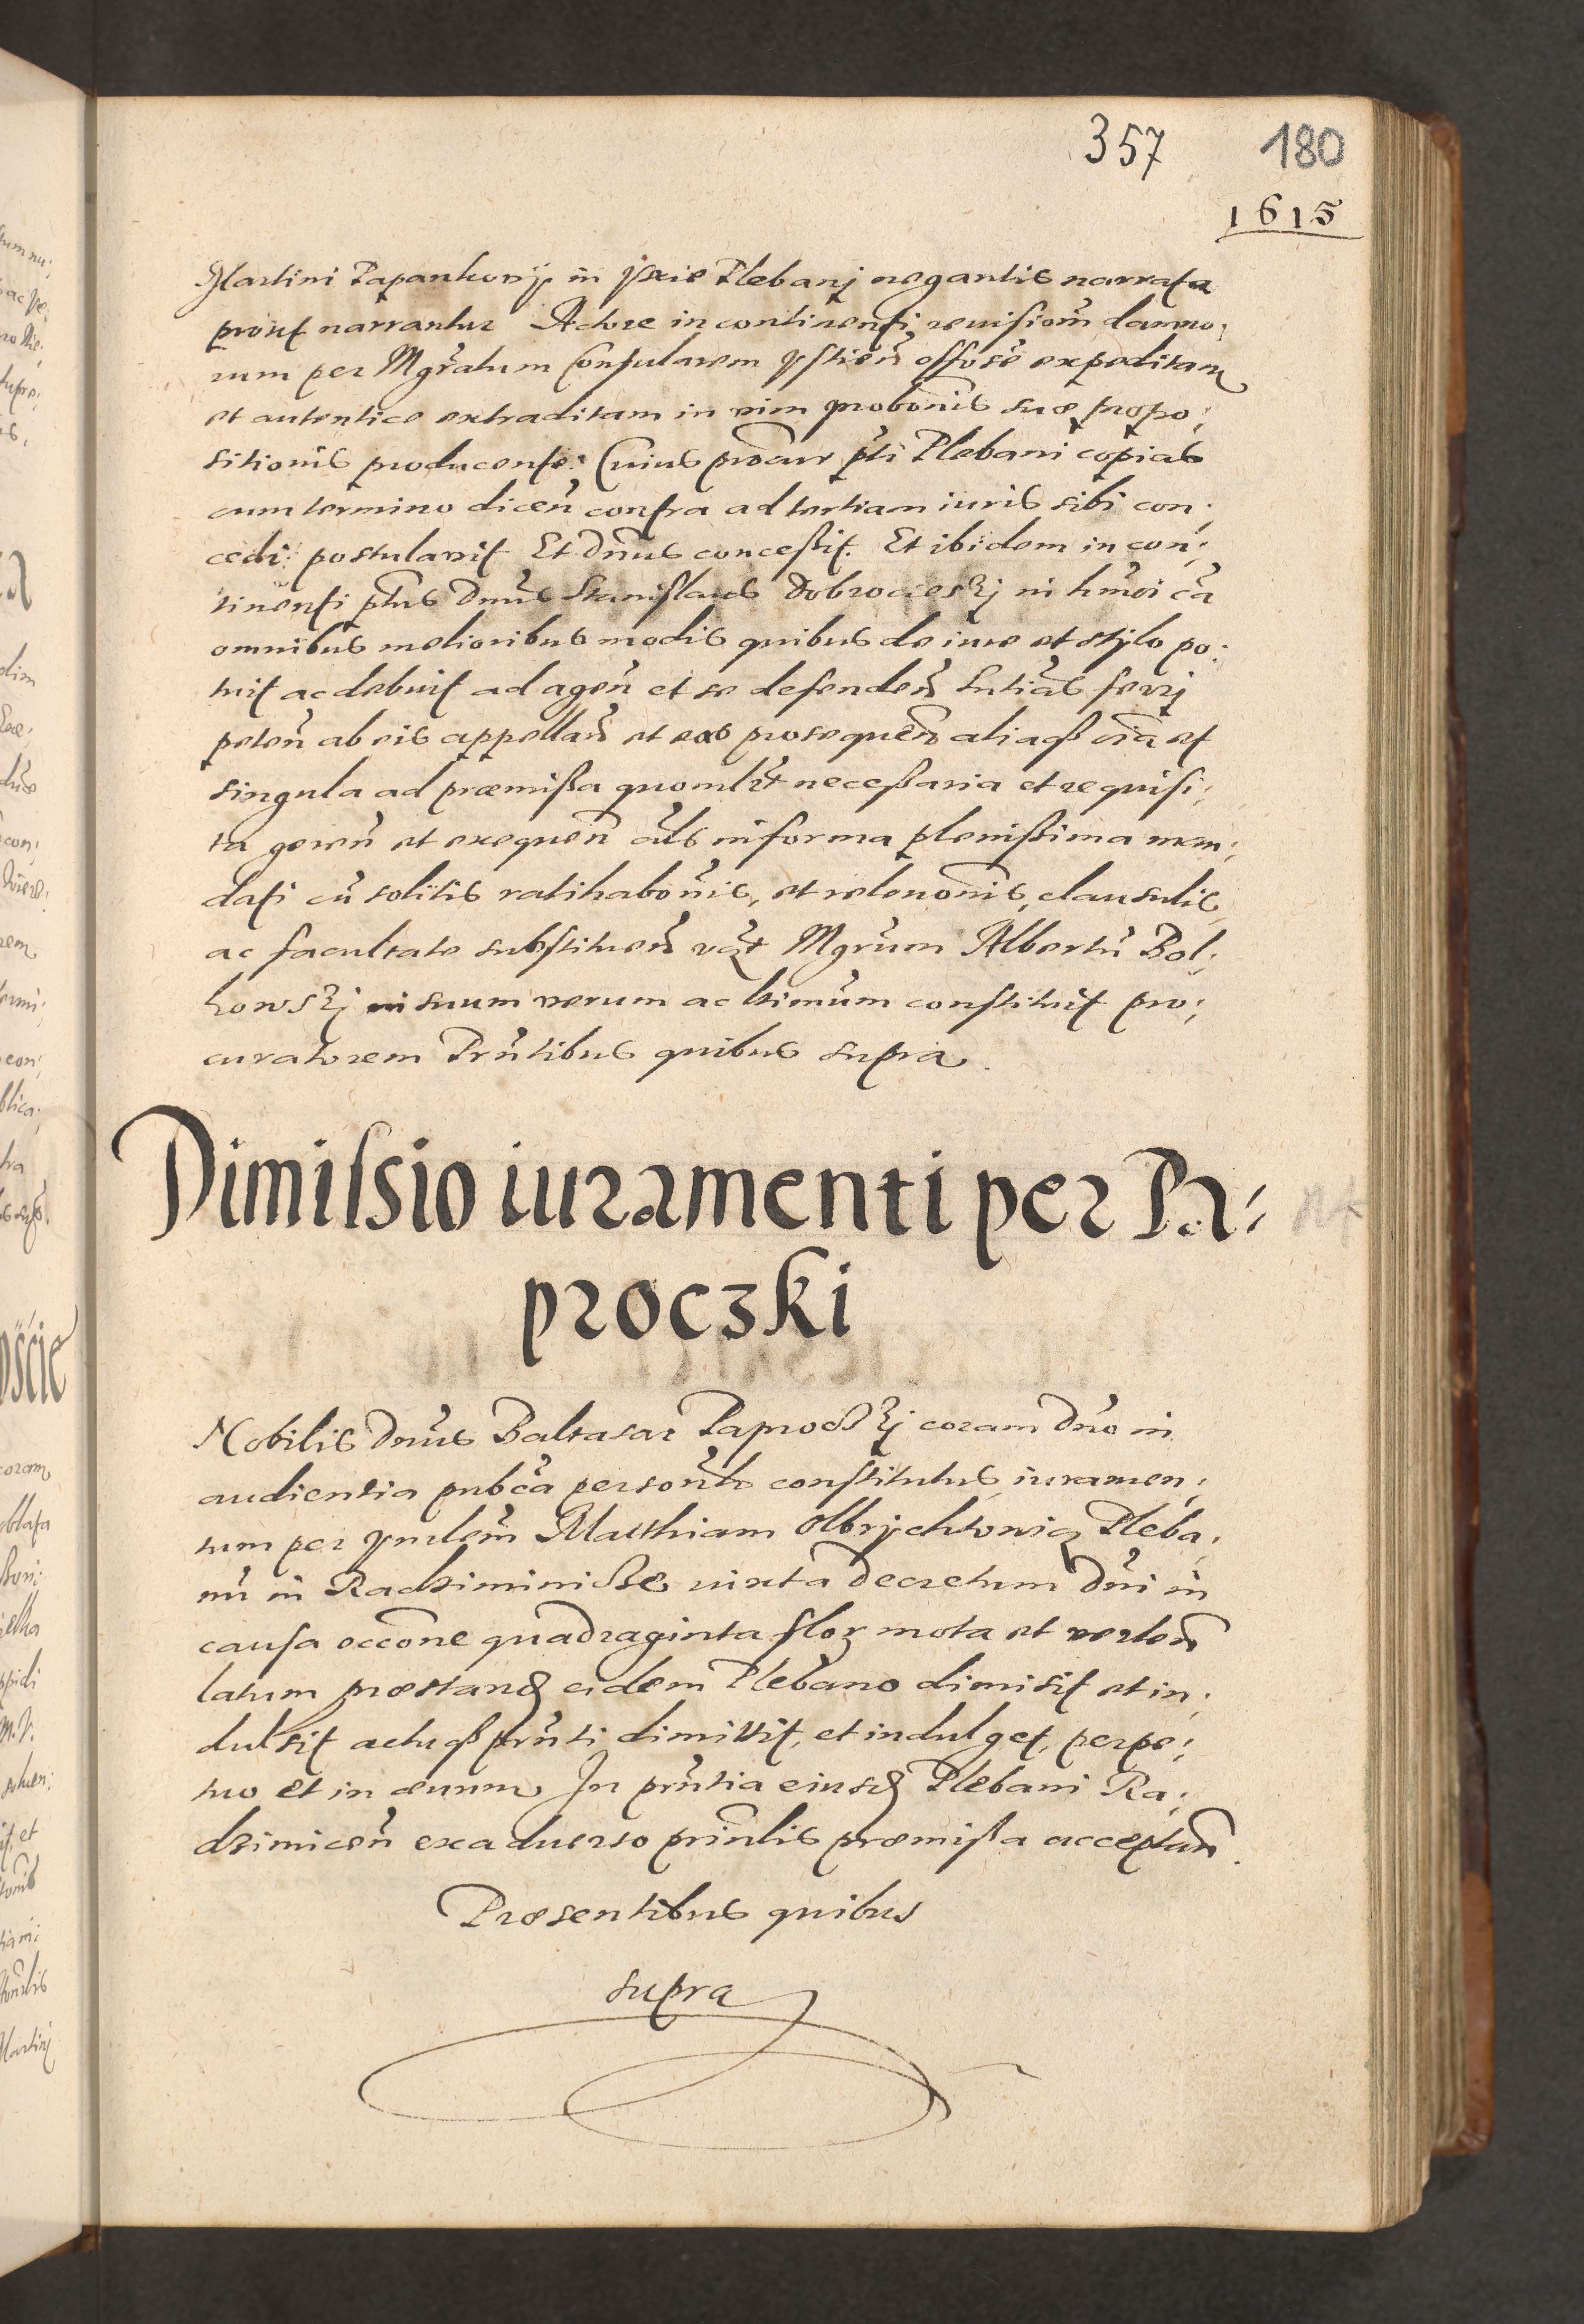 357 180
1615
Martini Papankovij in Xsie Plebanj negantis narrata
prout narrantur Actore in continenti reuisiom̃ damno;
rum per Mgr̃atum Consularem offose expeditam
et autentice extraditam in vim probõnis suæ propo;
sitionis producente: Cuius procur pti Plebani copias
cum termino diceñ contra ad tertiam iuris sibi con;
cedi postulavit Et Dñus conceßit. Et ibidem in con;
tinenti ptus Dñus Stanislaus Dobrocieskj in hm̃oi cã
omnibus melioribus modis quibus de iure et stÿlo po;
tuit ac debuit ad ageñ et se defendeñ sñtias ferrj
peteñ ab eis appellañ et eas prosequeñ aliaqß oĩa et
singula ad præmißa quomlt̃ neceßaria et requisi;
ta gereñ et exequeñ als in forma plenißima man;
dati cũ solitis ratihabõnis, et relevõnis, clausulis,
ac facultate substitueñ Mgr̃um Albertũ Bol;
kowskj in suum verum ac ltimũm constituit pro;
curatorem Prñtibus quibus supra.
Dimissio iuramenti per Pa;
proczki
Nobilis Dñus Baltasar Paprockj coram Dño in
audientia pubc̃a persoñlr constitutus iuramen;
tum per Matthiam Olbrychtowicz Pleba;
nũ in Radziminicze iuxta Decretum Dñi in
causa occõne quadraginta flor mota et verteñ
latum præstand eidem Plebano dimisit et in;
dulsit actuqß prñti dimittit, et indulget, perpe;
tuo et in ævum In prñtia eiusd Plebani Ra;
dzimiceñ ex aduerso priñlis præmißa acceptañ.
Præsentibus quibus
supra